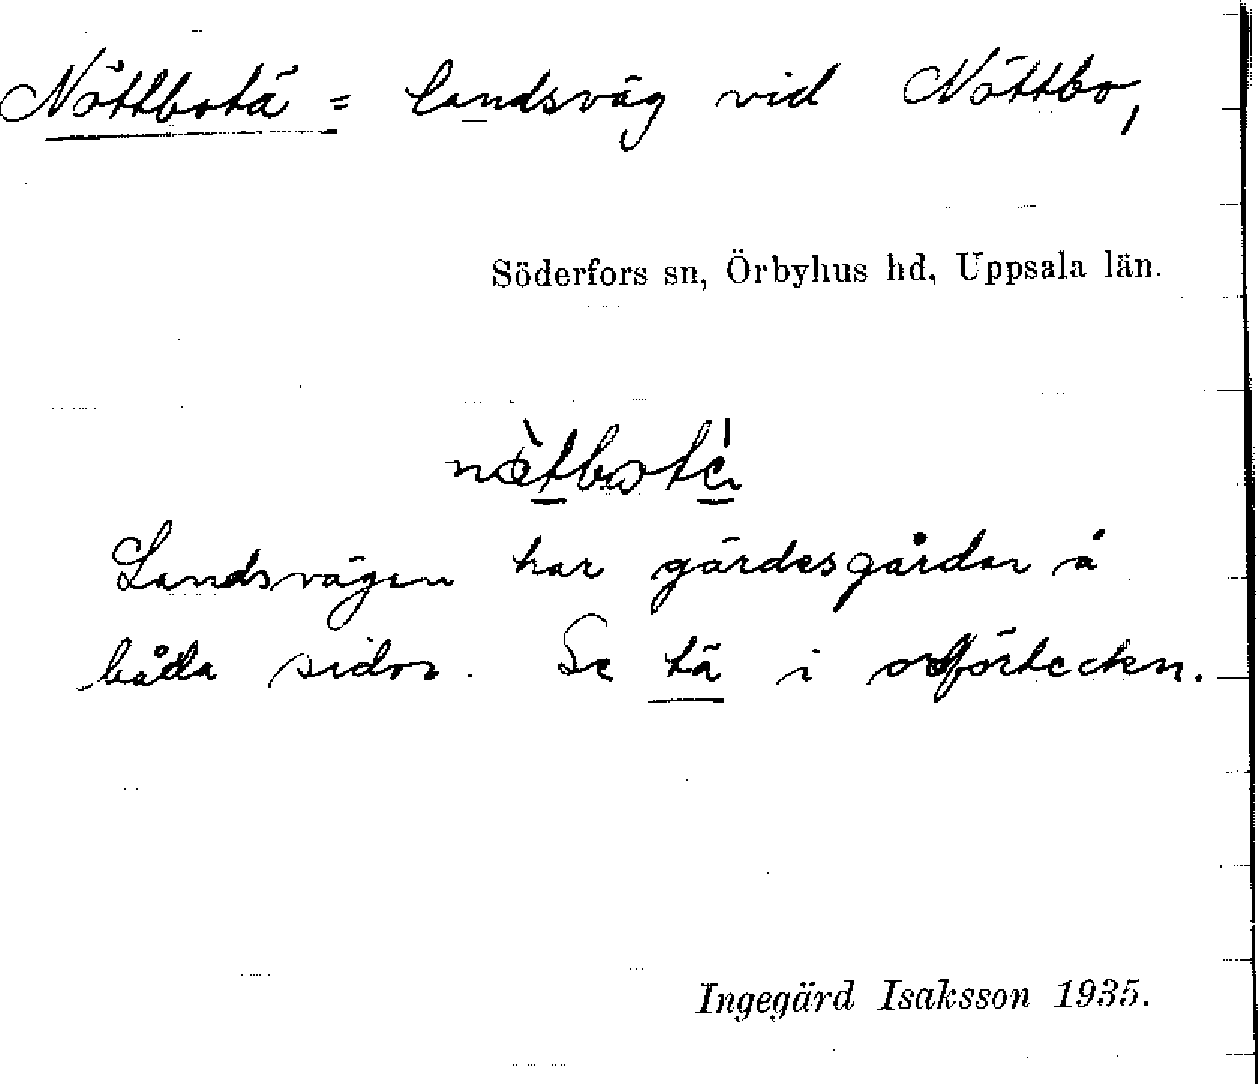 Nöttbotä = landsväg vid Nöttbo,
Söderfors sn, Örbyhus hd, Uppsala län.
Landsvägen har gärdesgårdar å
båda sidor. Se tä i ordförteckn.
Ingegärd Isaksson 1935.